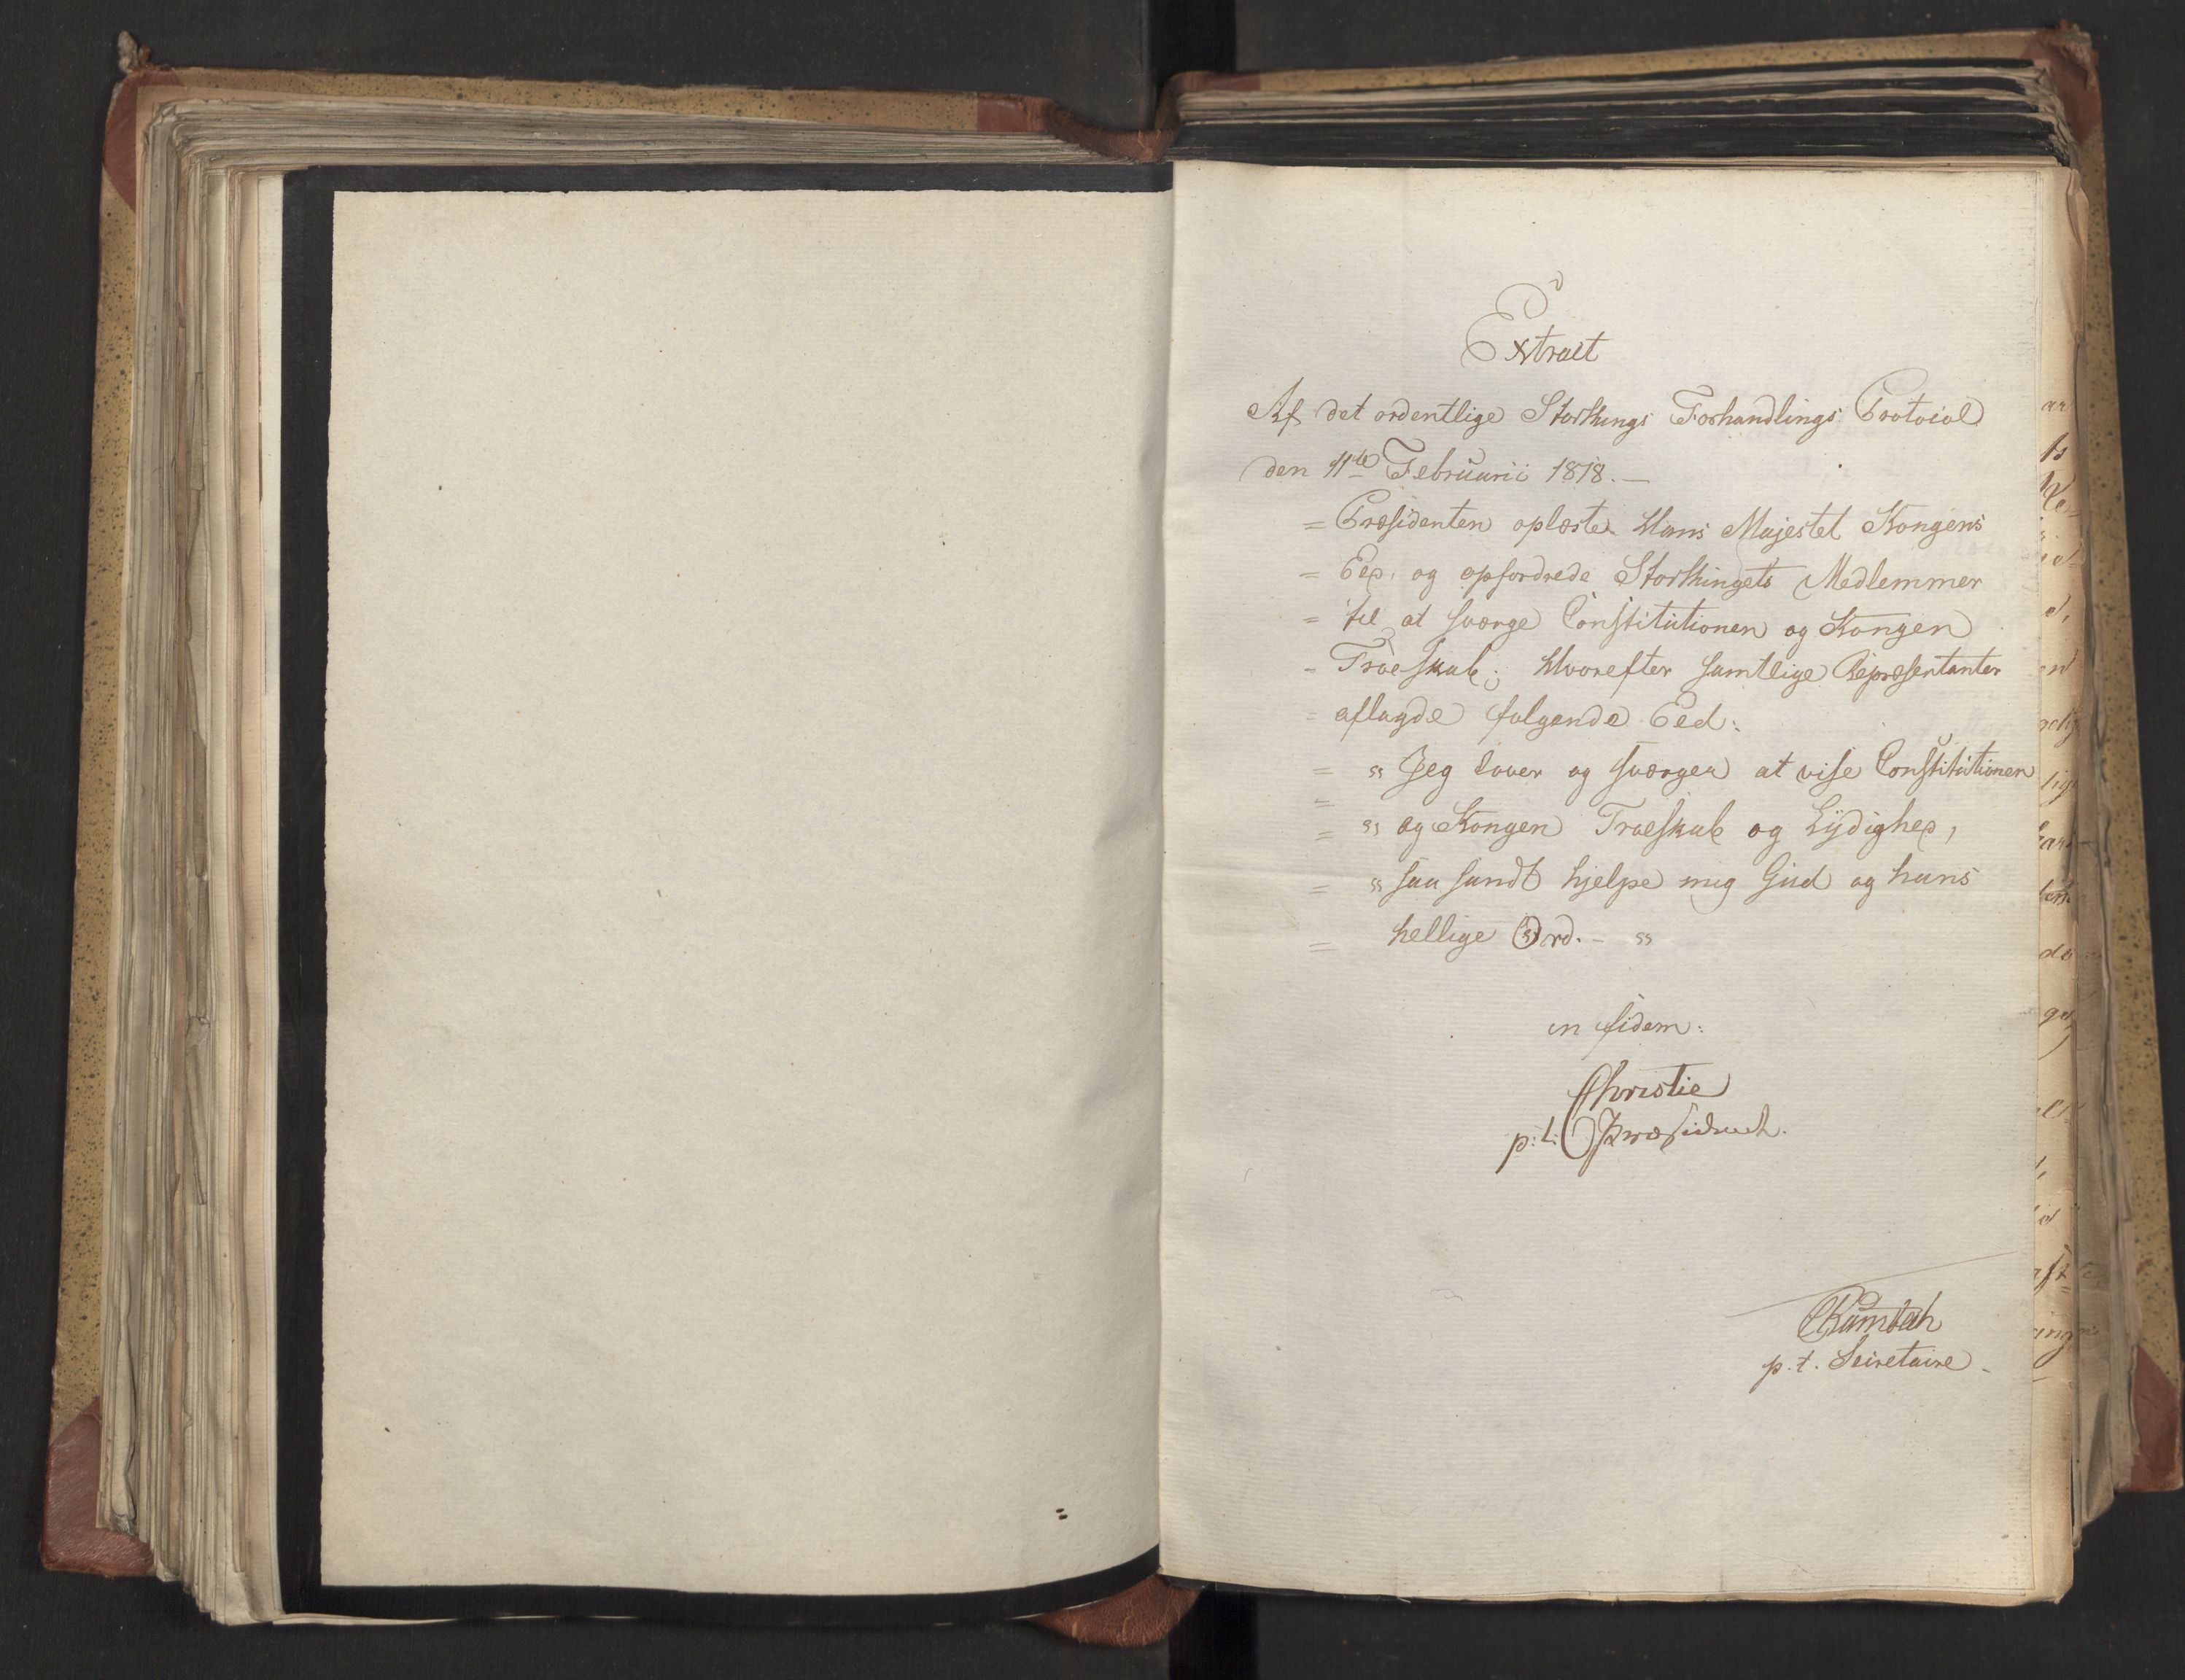 Extract
Af det ordentlige Storthings Forhandlings Protocol
den 11te Februarii 1818. —
= Præsidenten oplæste Hans Majestet Kongens
= Eed, og opfordrede Storthingets Medlemmer
= til at sværge Constitutionen og Kongen
= Troeskab; Hvorefter samtlige Repræsentanter
= aflagde følgende Eed:
= „ Jeg lover og sværger at vise Constitutionen
= „ og Kongen Troeskab og Lydighed,
= „ saa sandt hjelpe mig Gud og hans
= hellige Ord. — „
in fidem:
Christie
p: t: Præsident.
CRambech
p. t. Secretaire